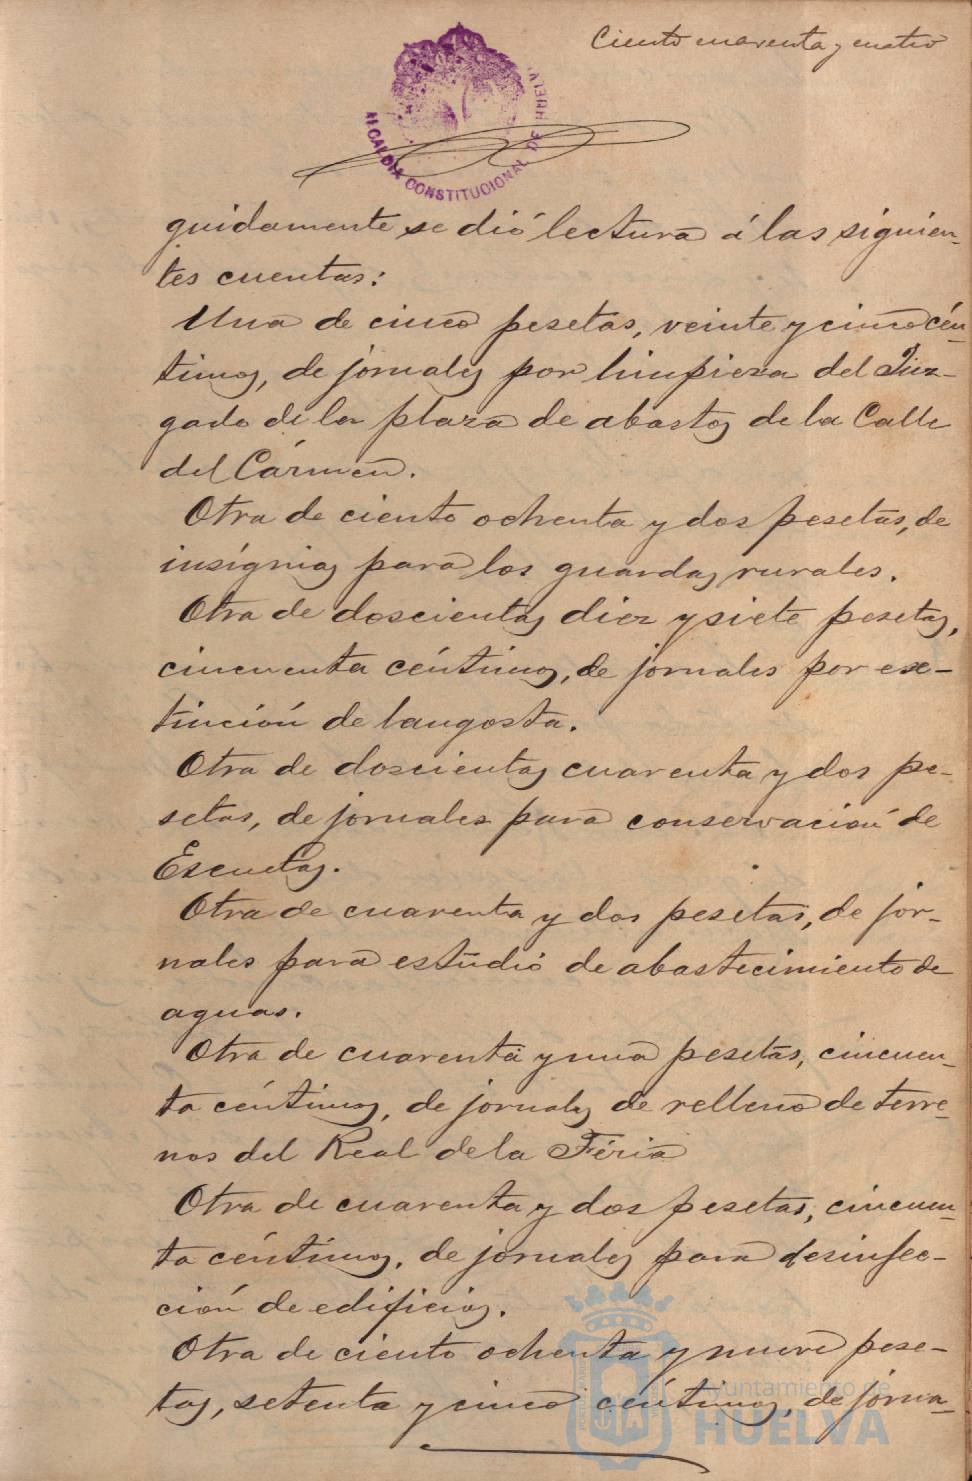 Ciento cuarenta y cuatro
ALCALDIA CONSTITUCIONAL DE HUELVA
guidamente se dió lectura á las siguien-
tes cuentas:
Una de cinco pesetas, veinte y cinco cén-
timos, de jornales por limpieza del Juz-
gado de la plaza de abastos de la Calle
del Cármen.
Otra de ciento ochenta y dos pesetas, de
insígnias para los guardas rurales.
Otra de doscientas diez y siete pesetas,
cincuenta céntimos, de jornales por ex-
tinción de langosta.
Otra de doscientas cuarenta y dos pe-
setas, de jornales para conservación de
Escuelas.
Otra de cuarenta y dos pesetas, de jor-
nales para estudio de abastecimiento de
aguas.
Otra de cuarenta y una pesetas, cincuen-
ta céntimos, de jornales de relleno de terre-
nos del Real de la Féria
Otra de cuarenta y dos pesetas, cincuen-
ta céntimos, de jornales para desinfec-
ción de edificios.
Otra de ciento ochenta y nueve pese-
tas, setenta y cinco céntimos, de jorna-
Ayuntamiento de
HUELVA